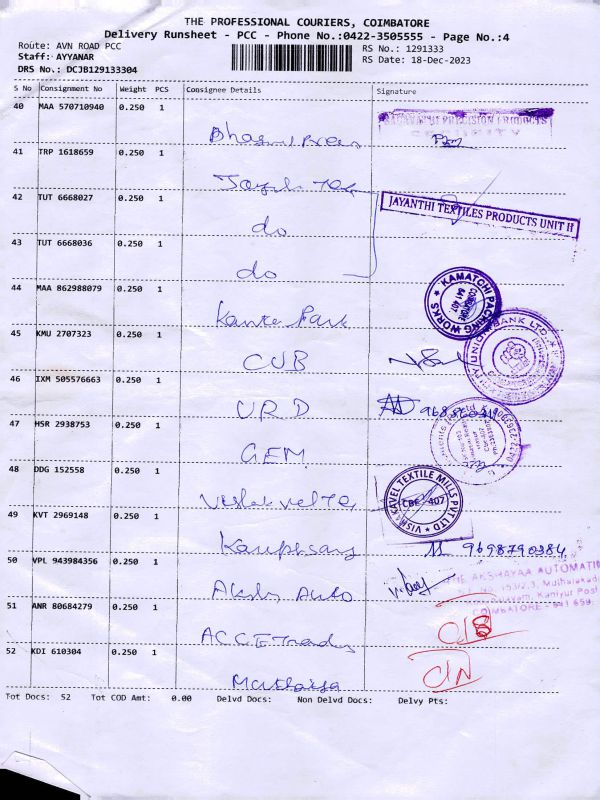 THE PROFESSIONAL COURIERS, COIMBATORE
Delivery Runsheet - PCC - Phone No.:0422-3505555 - Page No.:4
Route: AVN ROAD PCC
RS No.: 1291333
Staff: AYYANAR
RS Date: 18-Dec-2023
DRS No.: DCJB129133304
S No Consignment No Weight PCS Consignee Details Signature
40 MAA 570710940 0.250 1
PRECISION PRODUCTS
SECURITY
41 TRP 1618659 0.250 1
42 TUT 6668027 0.250 1
JAYANTHI TEXTILES PRODUCTS UNIT II
do
43 TUT 6668036 0.250 1
do
44 MAA 862988079 0.250 1
KAMATCHI PACKING WORKS
COIMBATORE
641 407
Park
45 KMU 2707323 0.250 1
UNION BANK LTD.
CUB
46 IXM 505576663 0.250 1
URD
47 HSR 2938753 0.250 1
GEM
48 DDG 152558 0.250 1
VISHAKAVEL TEXTILE MILLS PVT LTD
CBE 407
49 KVT 2969148 0.250 1
9698790384
50 VPL 943984356 0.250 1
THE AKSHAYAA AUTOMATI
Kaniyur Post
COIMBATORE - 641 659.
Auto
51 ANR 80684279 0.250 1
52 KDI 610304 0.250 1
Tot Docs: 52 Tot COD Amt: 0.00 Delvd Docs: Non Delvd Docs: Delvy Pts: